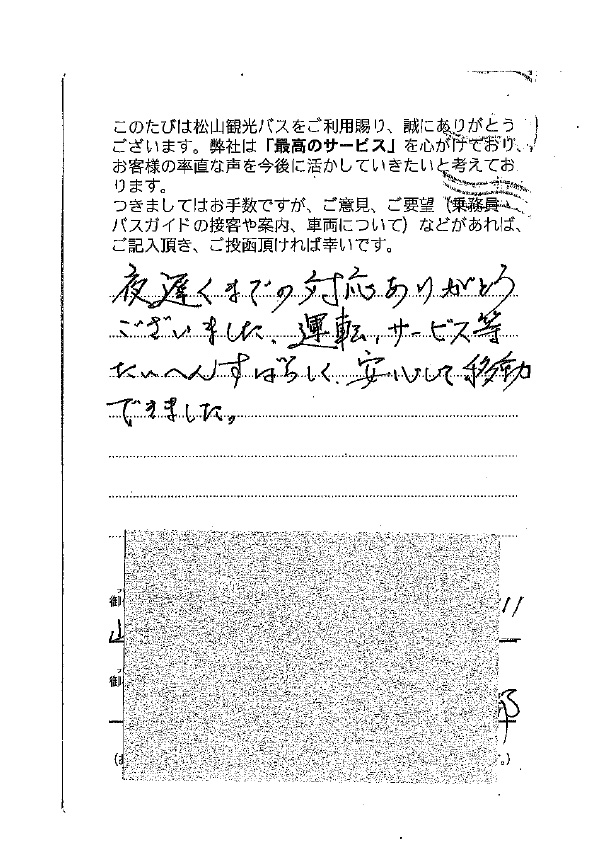 このたびは松山観光バスをご利用賜り、誠にありがとう
ございます。弊社は「最高のサービス」を心がけており、
お客様の率直な声を今後に活かしていきたいと考えてお
ります。
つきましてはお手数ですが、ご意見、ご要望（乗務員・
バスガイドの接客や案内、車両について）などがあれば、
ご記入頂き、ご投函頂ければ幸いです。
夜遅くまでの対応ありがとう
ございました。運転,サービス等
たいへんすばらしく、安心して移動
できました。
御
山
御
郎